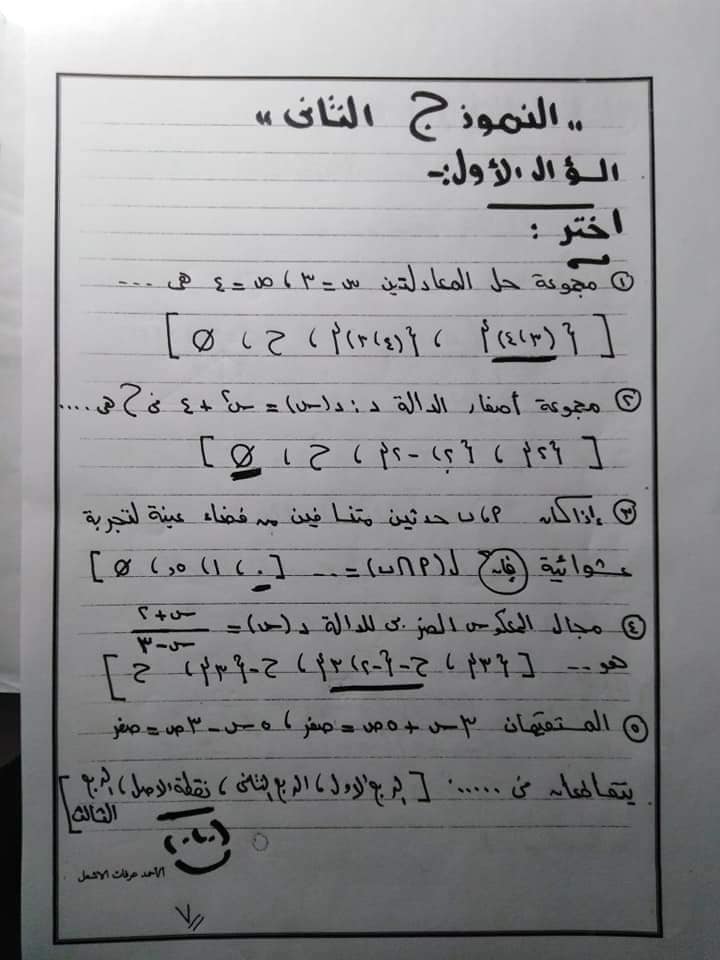 " النموذج الثانى "
السؤال الأول:-
اختر :
① مجموعة حل المعادلتين س = ٣ ، ص = ٤ هى ...
[ {(٣،٤)} ، {(٤،٣)} ، ح ، Ø ]
② مجموعة أصفار الدالة د : د(س) = س٢ + ٤ فى ح هى ....
[ {٢} ، {٢، -٢} ، ح ، Ø ]
③ إذا كان P ، ب حدثين متنافيين من فضاء عينة لتجربة
عشوائية فإن ل(P ∩ ب) = ... [ ٠ ، ١ ، ٥,٠ ، Ø ]
④ مجال المعكوس الضربى للدالة د(س) = س+٢ / س-٣
هو .. [ {٣} ، ح-{-٢،٣} ، ح-{٣} ، ح ]
⑤ المستقيمان ٣س + ٥ص = صفر ، ٥س - ٣ص = صفر
يتقاطعان فى ..... [ الربع الأول ، الربع الثانى ، نقطة الاصل ، الربع الثالث ]
(٠،٠)
٧